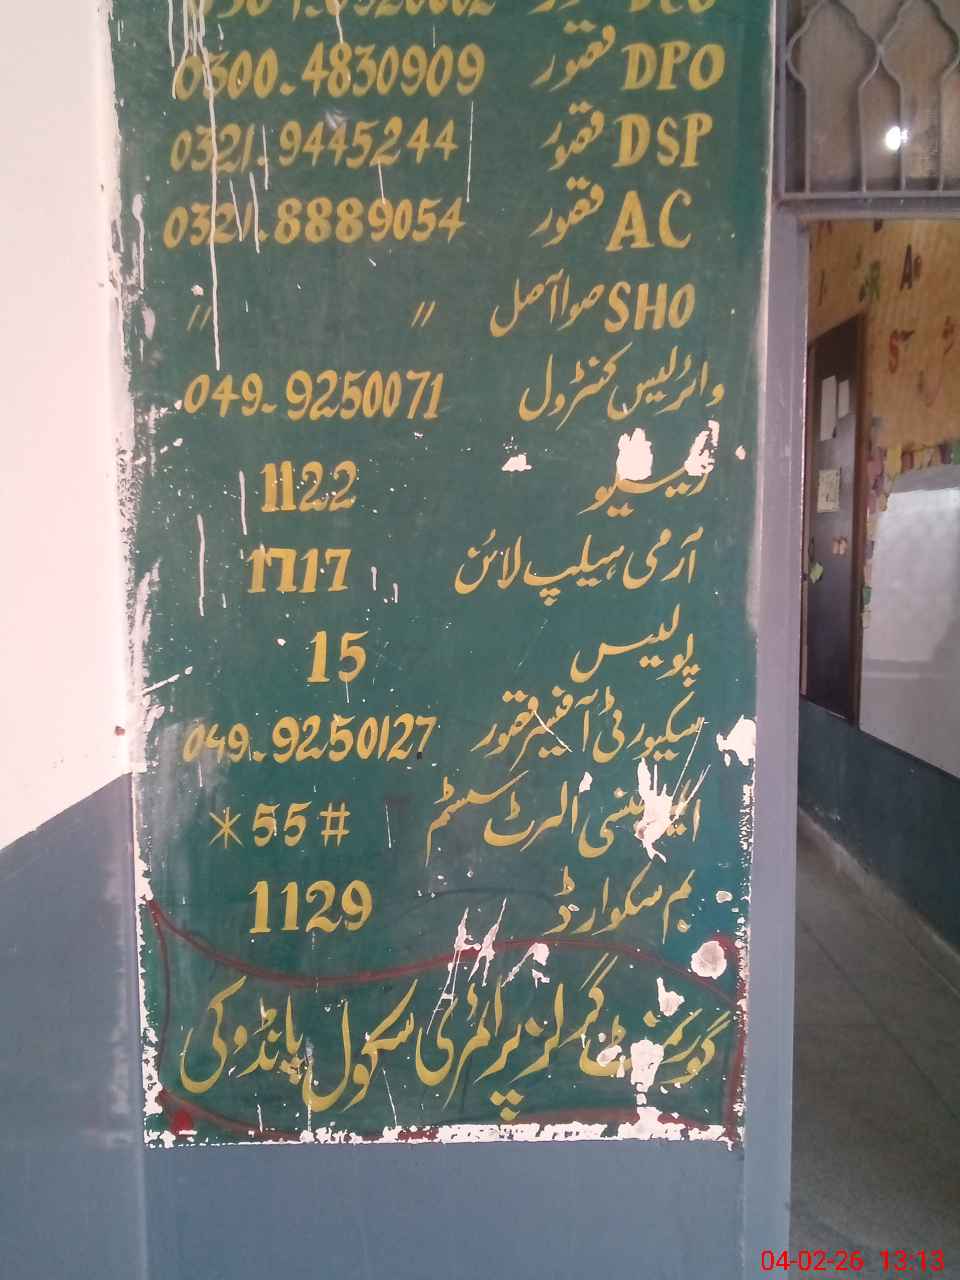 DPO قصور 0300-4830909
DSP قصور 0321-9445244
AC قصور 0321-8889054
SHO صوا آصل " "
وائرلیس کنٹرول 049-9250071
ریسکیو 1122
آرمی ہیلپ لائن 1717
پولیس 15
سکیورٹی آفیسر قصور 049-9250127
ایمرجنسی الرٹ سسٹم *55#
بم سکوارڈ 1129
گورنمنٹ گرلز پرائمری سکول پانڈوکی
04-02-26 13:13